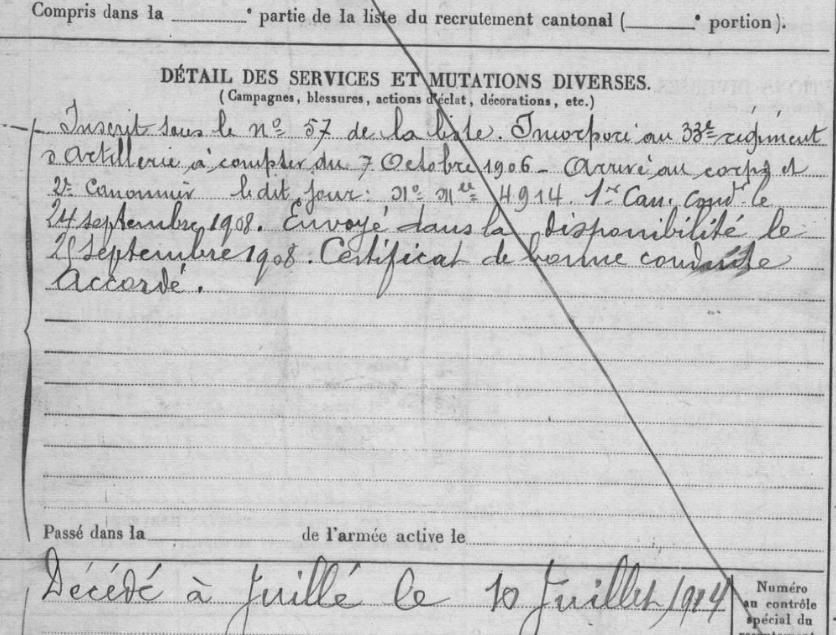 Compris dans la ______e partie de la liste du recrutement cantonal (______e portion).
DÉTAIL DES SERVICES ET MUTATIONS DIVERSES.
(Campagnes, blessures, actions d'éclat, décorations, etc.)
Inscrit sous le no 57 de la liste. Incorporé au 33e régiment
d'Artillerie à compter du 7 Octobre 1906 - Arrivé au corps et
2e Canonnier le dit jour: No Mle 4914. 1er Can. Condr le
24 septembre 1908. Envoyé dans la disponibilité le
25 Septembre 1908. Certificat de bonne conduite
Accordé.
Passé dans la ______ de l'armée active le
Décédé à Juillé le 10 Juillet 1914
Numéro
au contrôle
spécial du